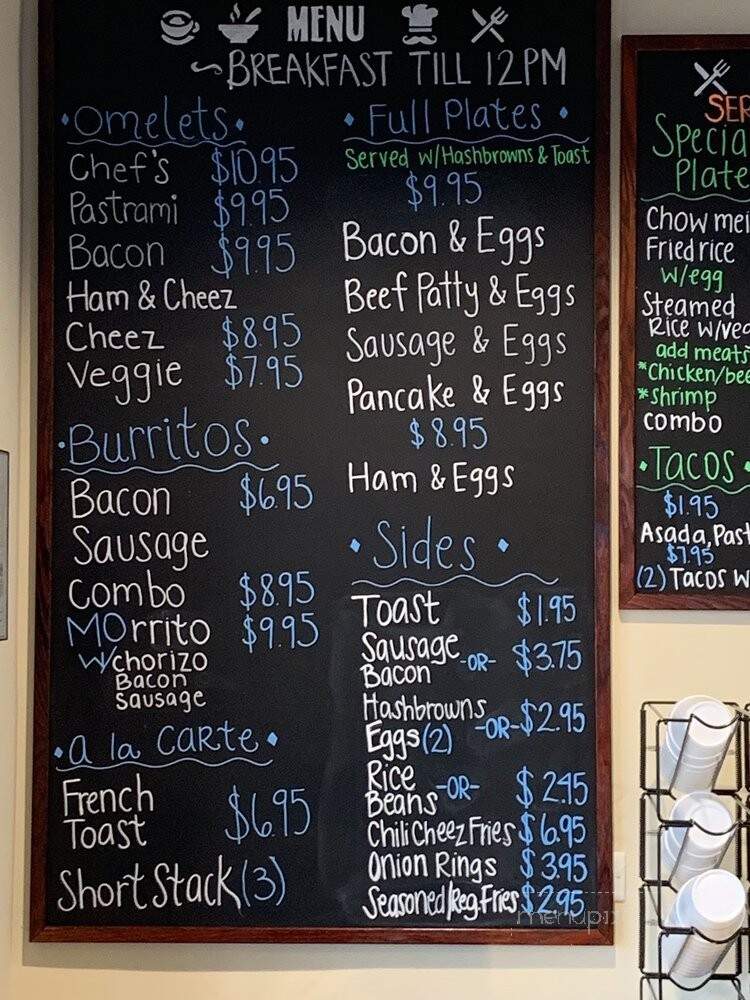 MENU
~BREAKFAST TILL 12PM
Omelets
Chef's $10.95
Pastrami $9.95
Bacon $9.95
Ham & Cheez
Cheez $8.95
Veggie $7.95
Burritos
Bacon $6.95
Sausage
Combo $8.95
MOrrito $9.95
w/chorizo
Bacon
Sausage
a la CARTe
French
Toast $6.95
Short Stack (3)
Full Plates
Served w/Hashbrowns & Toast
$9.95
Bacon & Eggs
Beef Patty & Eggs
Sausage & Eggs
Pancake & Eggs
$8.95
Ham & Eggs
Sides
Toast $1.95
Sausage -OR- $3.75
Bacon
Hashbrowns -OR- $2.95
Eggs (2)
Rice -OR- $2.45
Beans
Chili Cheez Fries $6.95
Onion Rings $3.95
Seasoned/Reg.Fries $2.95
SER
Specia
Plate
Chow mei
Fried rice
w/egg
Steamed
Rice w/veg
add meats
*Chicken/bee
*shrimp
combo
TACOS
$1.95
Asada, Past
$7.95
(2) Tacos w
menupix